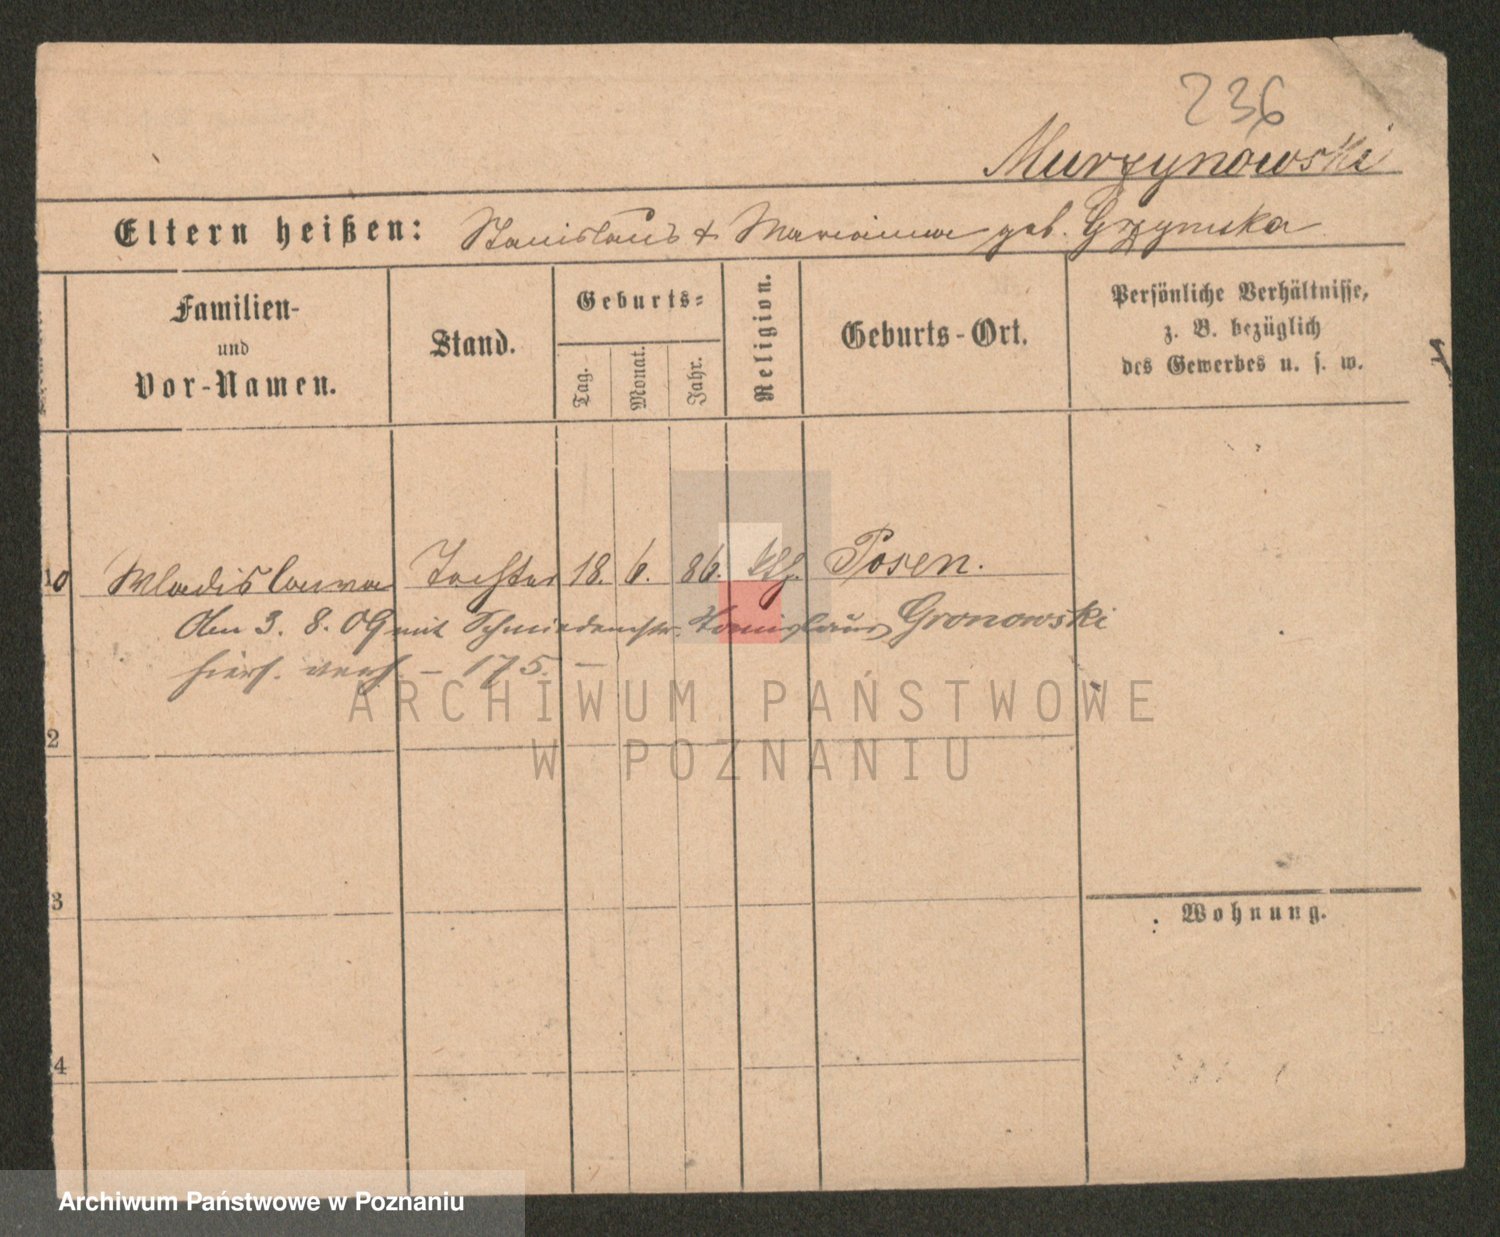 236
Murzynowski
Eltern heißen: Stanislaus & Marianna geb.
Familien-
und
Vor-Namen.
Stand.
Geburts-
Tag.
Monat.
Jahr.
Religion.
Geburts-Ort.
Persönliche Verhältnisse,
z. B. bezüglich
des Gewerbes u. s. w.
10 Wladislawa Tochter 18. 6. 86. Posen.
Am 3. 8. 09 mit Gronowski
hiers. verh. – 175. –
ARCHIWUM PAŃSTWOWE
W POZNANIU
2
3
Wohnung.
4
Archiwum Państwowe w Poznaniu